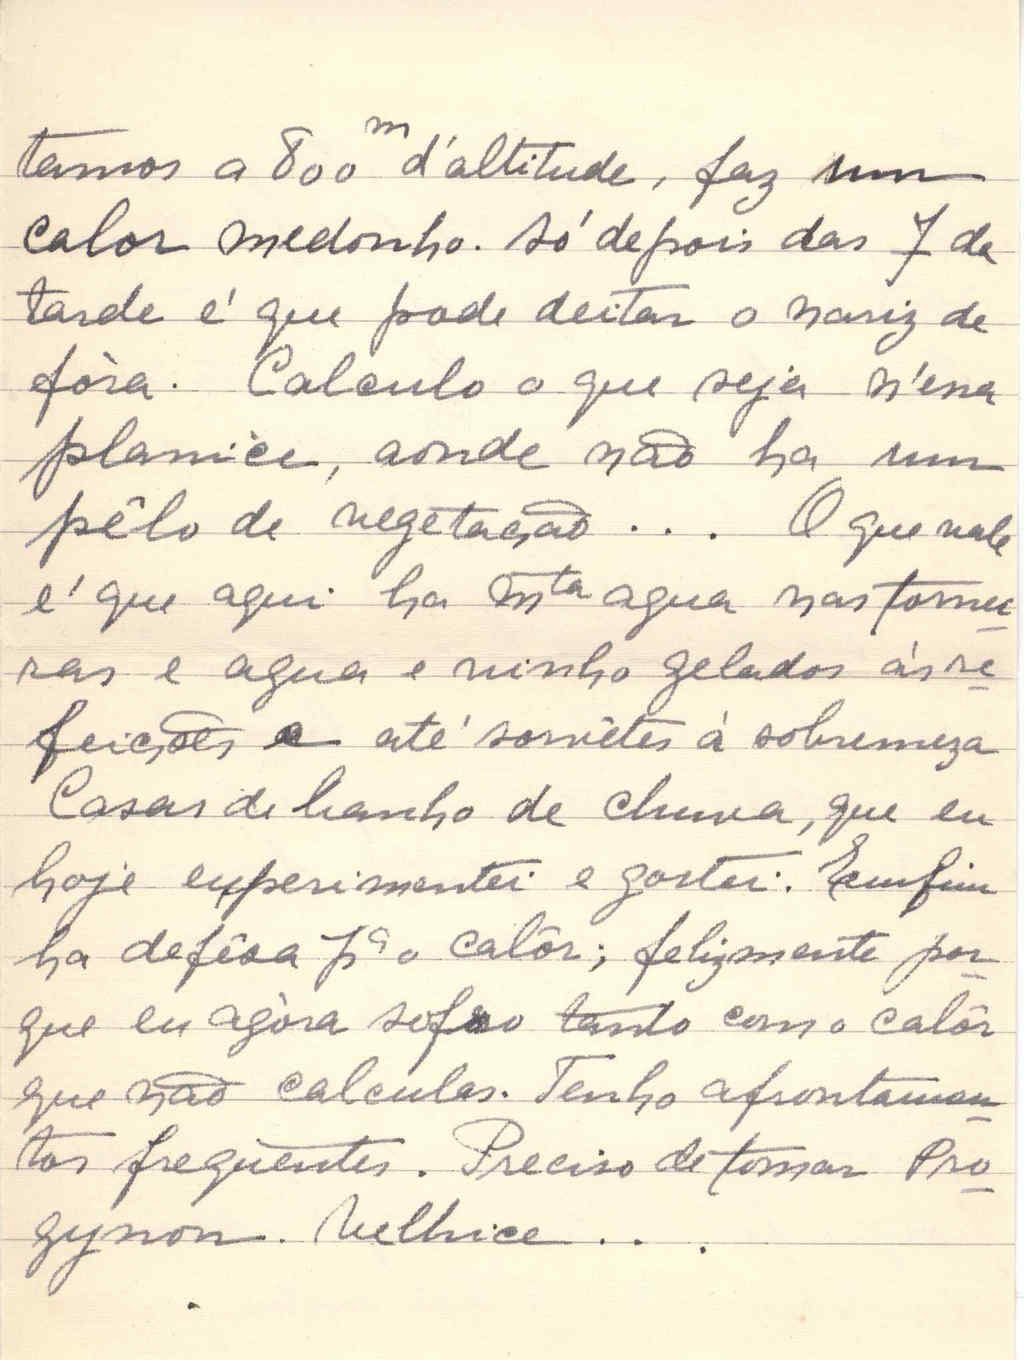 tamos a 800m d'altitude, faz um
calor medonho. Só depois das 7 da
tarde é que pode deitar o nariz de
fòra. Calculo o que seja n'essa
planice, aonde não ha um
pêlo de vegetação . . . O que vale
é que aqui ha mta agua nas tornei-
ras e agua e vinho gelados ás re-
feições e até sorvêtes á sobremeza
Casas de banho de chuva, que eu
hoje experimentei e gostei. Emfim
ha defêsa pa o calôr; felizmente por-
que eu agòra sofro tanto com o calôr
que não calculas. Tenho afrontamen-
tos freqüentes. Preciso de tomar Pro-
gynon. Velhice . . .